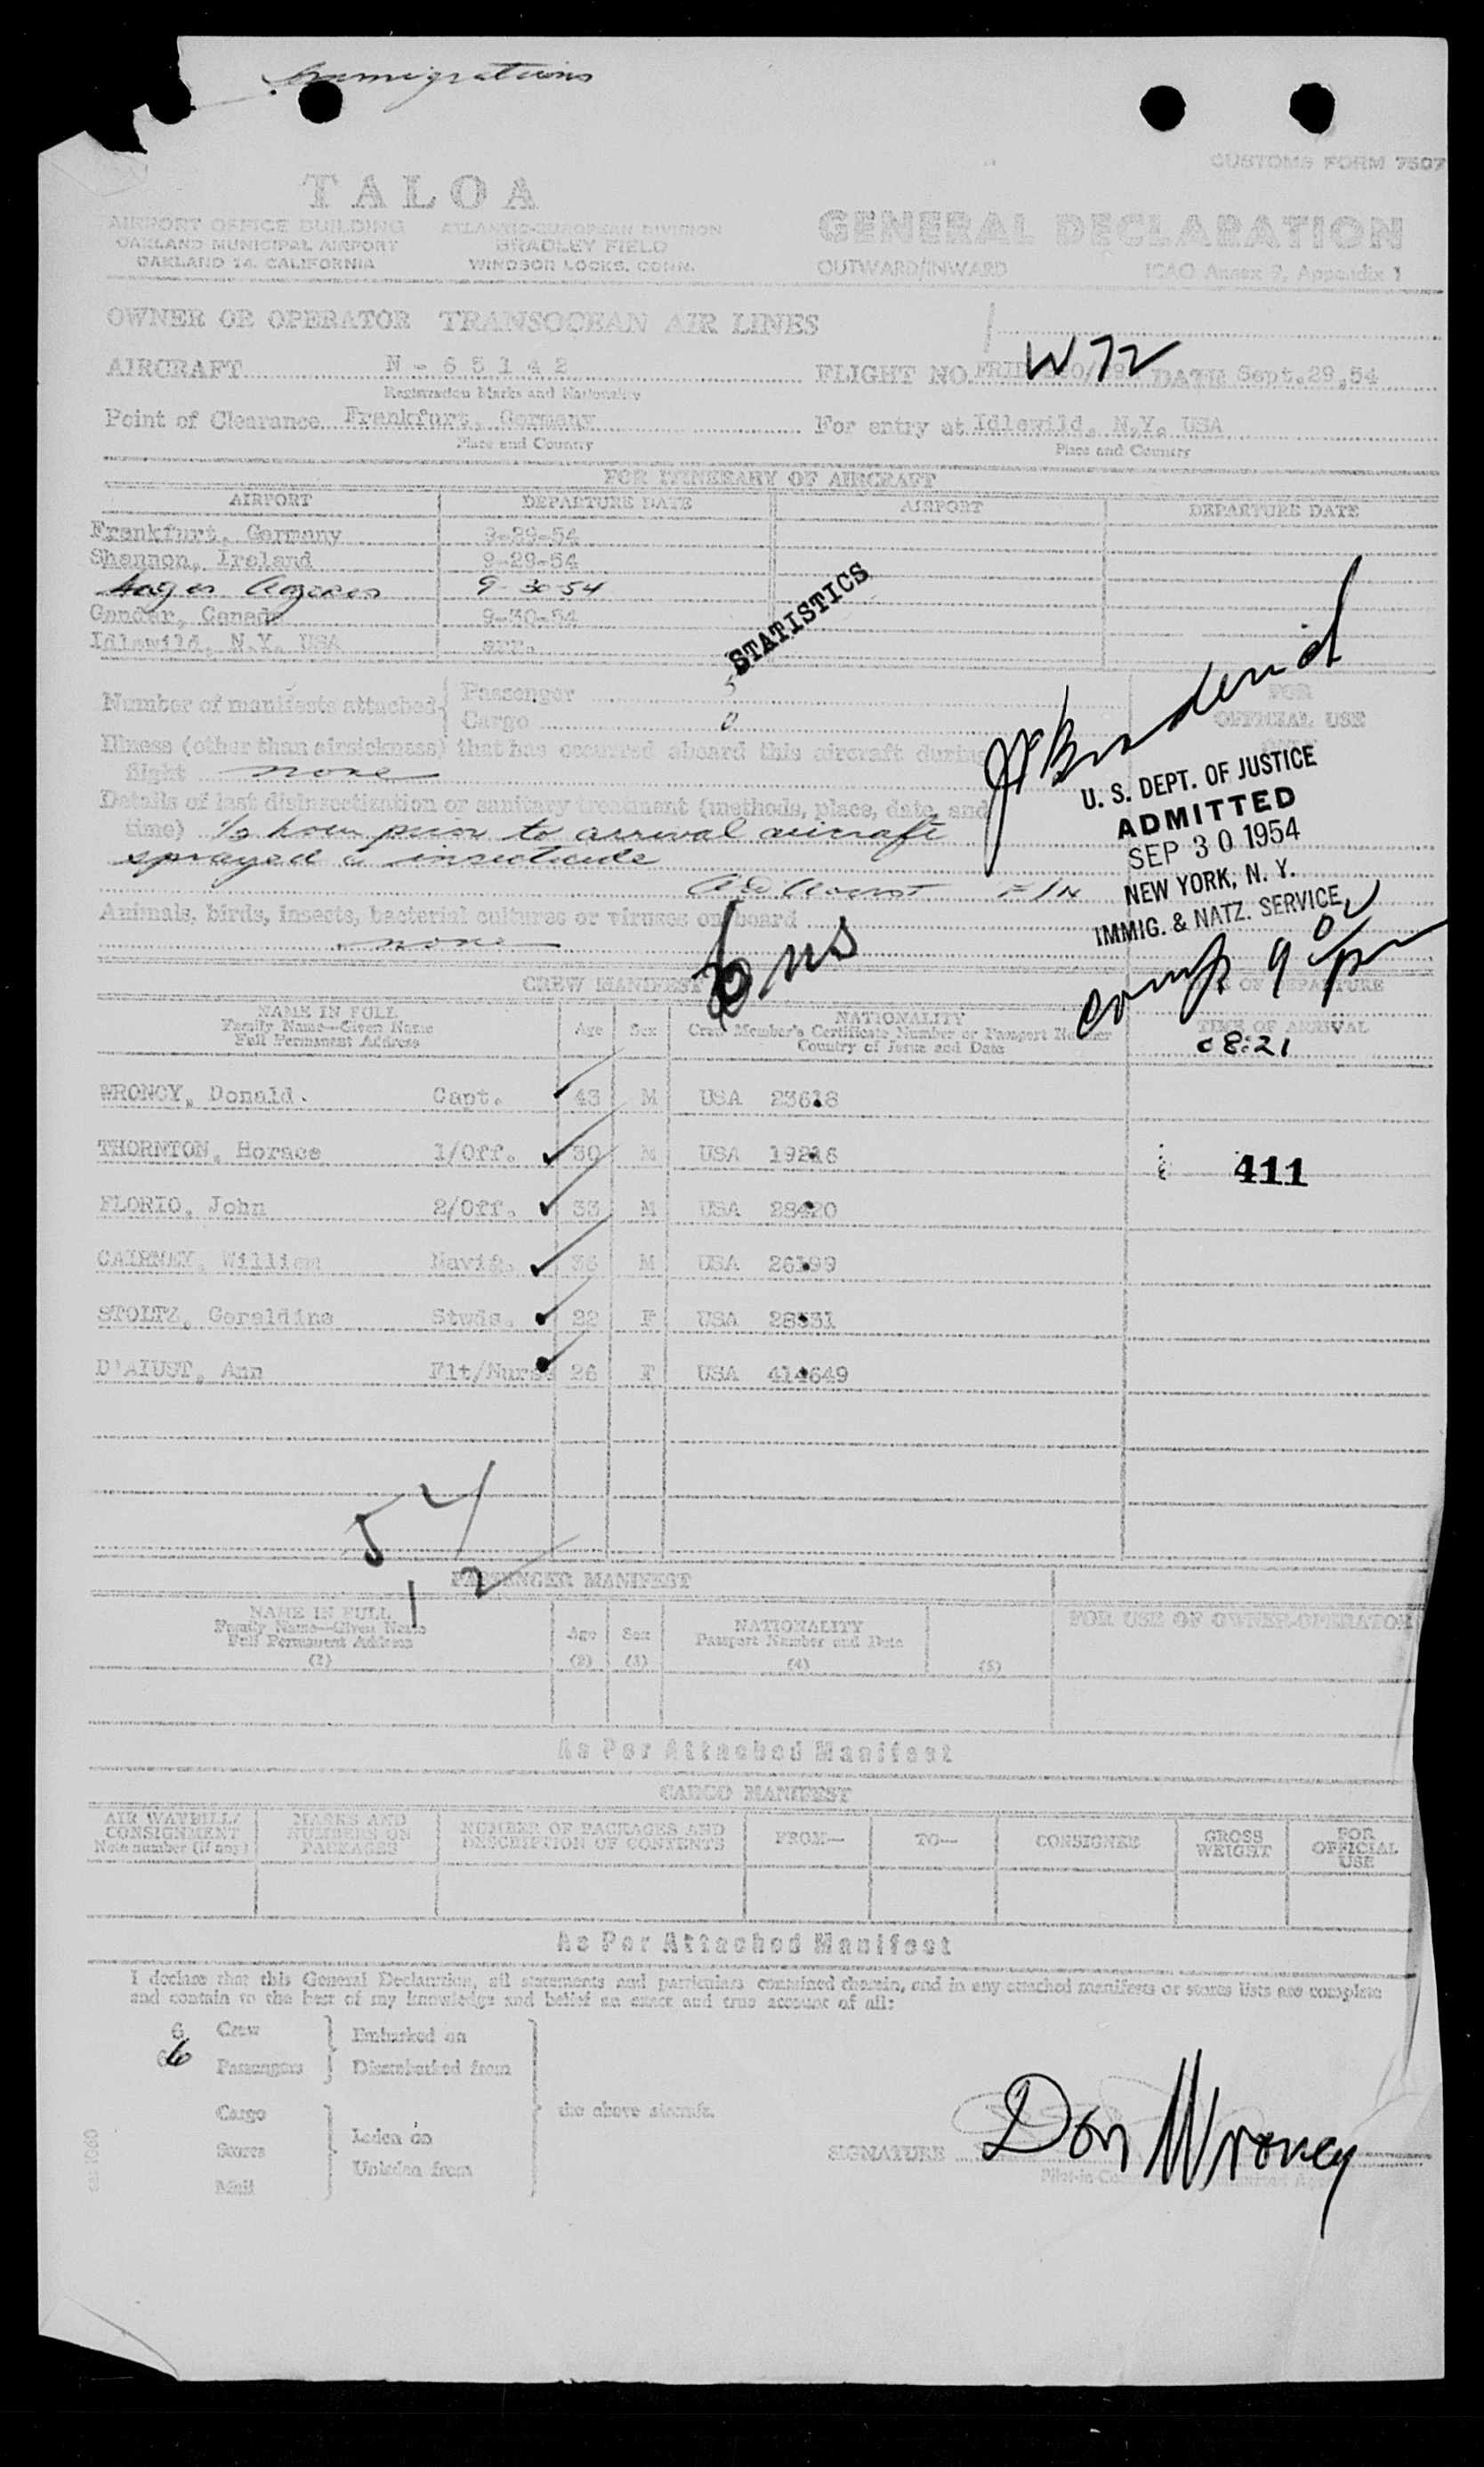 Immigrations
CUSTOMS FORM 7507
TALOA
AIRPORT OFFICE BUILDING
OAKLAND MUNICIPAL AIRPORT
OAKLAND 14, CALIFORNIA
ATLANTIC-EUROPEAN DIVISION
BRADLEY FIELD
WINDSOR LOCKS, CONN.
GENERAL DECLARATION
OUTWARD/INWARD ICAO Annex 9, Appendix 1
OWNER OR OPERATOR TRANSOCEAN AIR LINES
AIRCRAFT N - 6 5 1 4 2
Registration Marks and Nationality
FLIGHT NO. W72 DATE Sept. 29, 54
Point of Clearance Frankfurt, Germany
Place and Country
For entry at Idlewild, N.Y. USA
Place and Country
FOR ITINERARY OF AIRCRAFT
AIRPORT DEPARTURE DATE AIRPORT DEPARTURE DATE
Frankfurt, Germany 9-29-54
Shannon, Ireland 9-29-54
Azores 9-30-54
Gander, Canada 9-30-54
Idlewild, N.Y. USA ARR.
STATISTICS
Number of manifests attached Passenger 5
Cargo 0
FOR
OFFICIAL USE
Illness (other than airsickness) that has occurred aboard this aircraft during
flight none
Details of last disinsectization or sanitary treatment (methods, place, date, and
time) 1/2 hour prior to arrival aircraft
sprayed c insecticide
U. S. DEPT. OF JUSTICE
ADMITTED
SEP 30 1954
NEW YORK, N. Y.
IMMIG. & NATZ. SERVICE
Animals, birds, insects, bacterial cultures or viruses on board
none
6 us
comp 9
CREW MANIFEST
OF DEPARTURE
NAME IN FULL
Family Name—Given Name
Full Permanent Address
Age Sex
NATIONALITY
Crew Member's Certificate Number or Passport Number
Country of Issue and Date
TIME OF ARRIVAL
08:21
WRONCY, Donald. Capt. 43 M USA 23618
THORNTON, Horace 1/Off. 30 M USA 19216
411
FLORIO, John 2/Off. 33 M USA 28420
CAIRNEY, William Navig. 36 M USA 26199
STOLTZ, Geraldine Stwds. 22 F USA 28531
D'AIUST, Ann Flt/Nurse 26 F USA 414649
54
1 2
PASSENGER MANIFEST
NAME IN FULL
Family Name—Given Name
Full Permanent Address
(1)
Age
(2)
Sex
(3)
NATIONALITY
Passport Number and Date
(4)
(5)
FOR USE OF OWNER-OPERATOR
As Per Attached Manifest
CARGO MANIFEST
AIR WAYBILL/
CONSIGNMENT
Note number (if any)
MARKS AND
NUMBERS ON
PACKAGES
NUMBER OF PACKAGES AND
DESCRIPTION OF CONTENTS
FROM—
TO—
CONSIGNEE
GROSS
WEIGHT
FOR
OFFICIAL
USE
As Per Attached Manifest
I declare that this General Declaration, all statements and particulars contained therein, and in any attached manifests or stores lists are complete
and contain to the best of my knowledge and belief an exact and true account of all:
6 Crew
6 Passengers
Embarked on
Disembarked from
Cargo
Stores
Mail
Laden on
Unladen from
the above aircraft.
SIGNATURE Don Wroncy